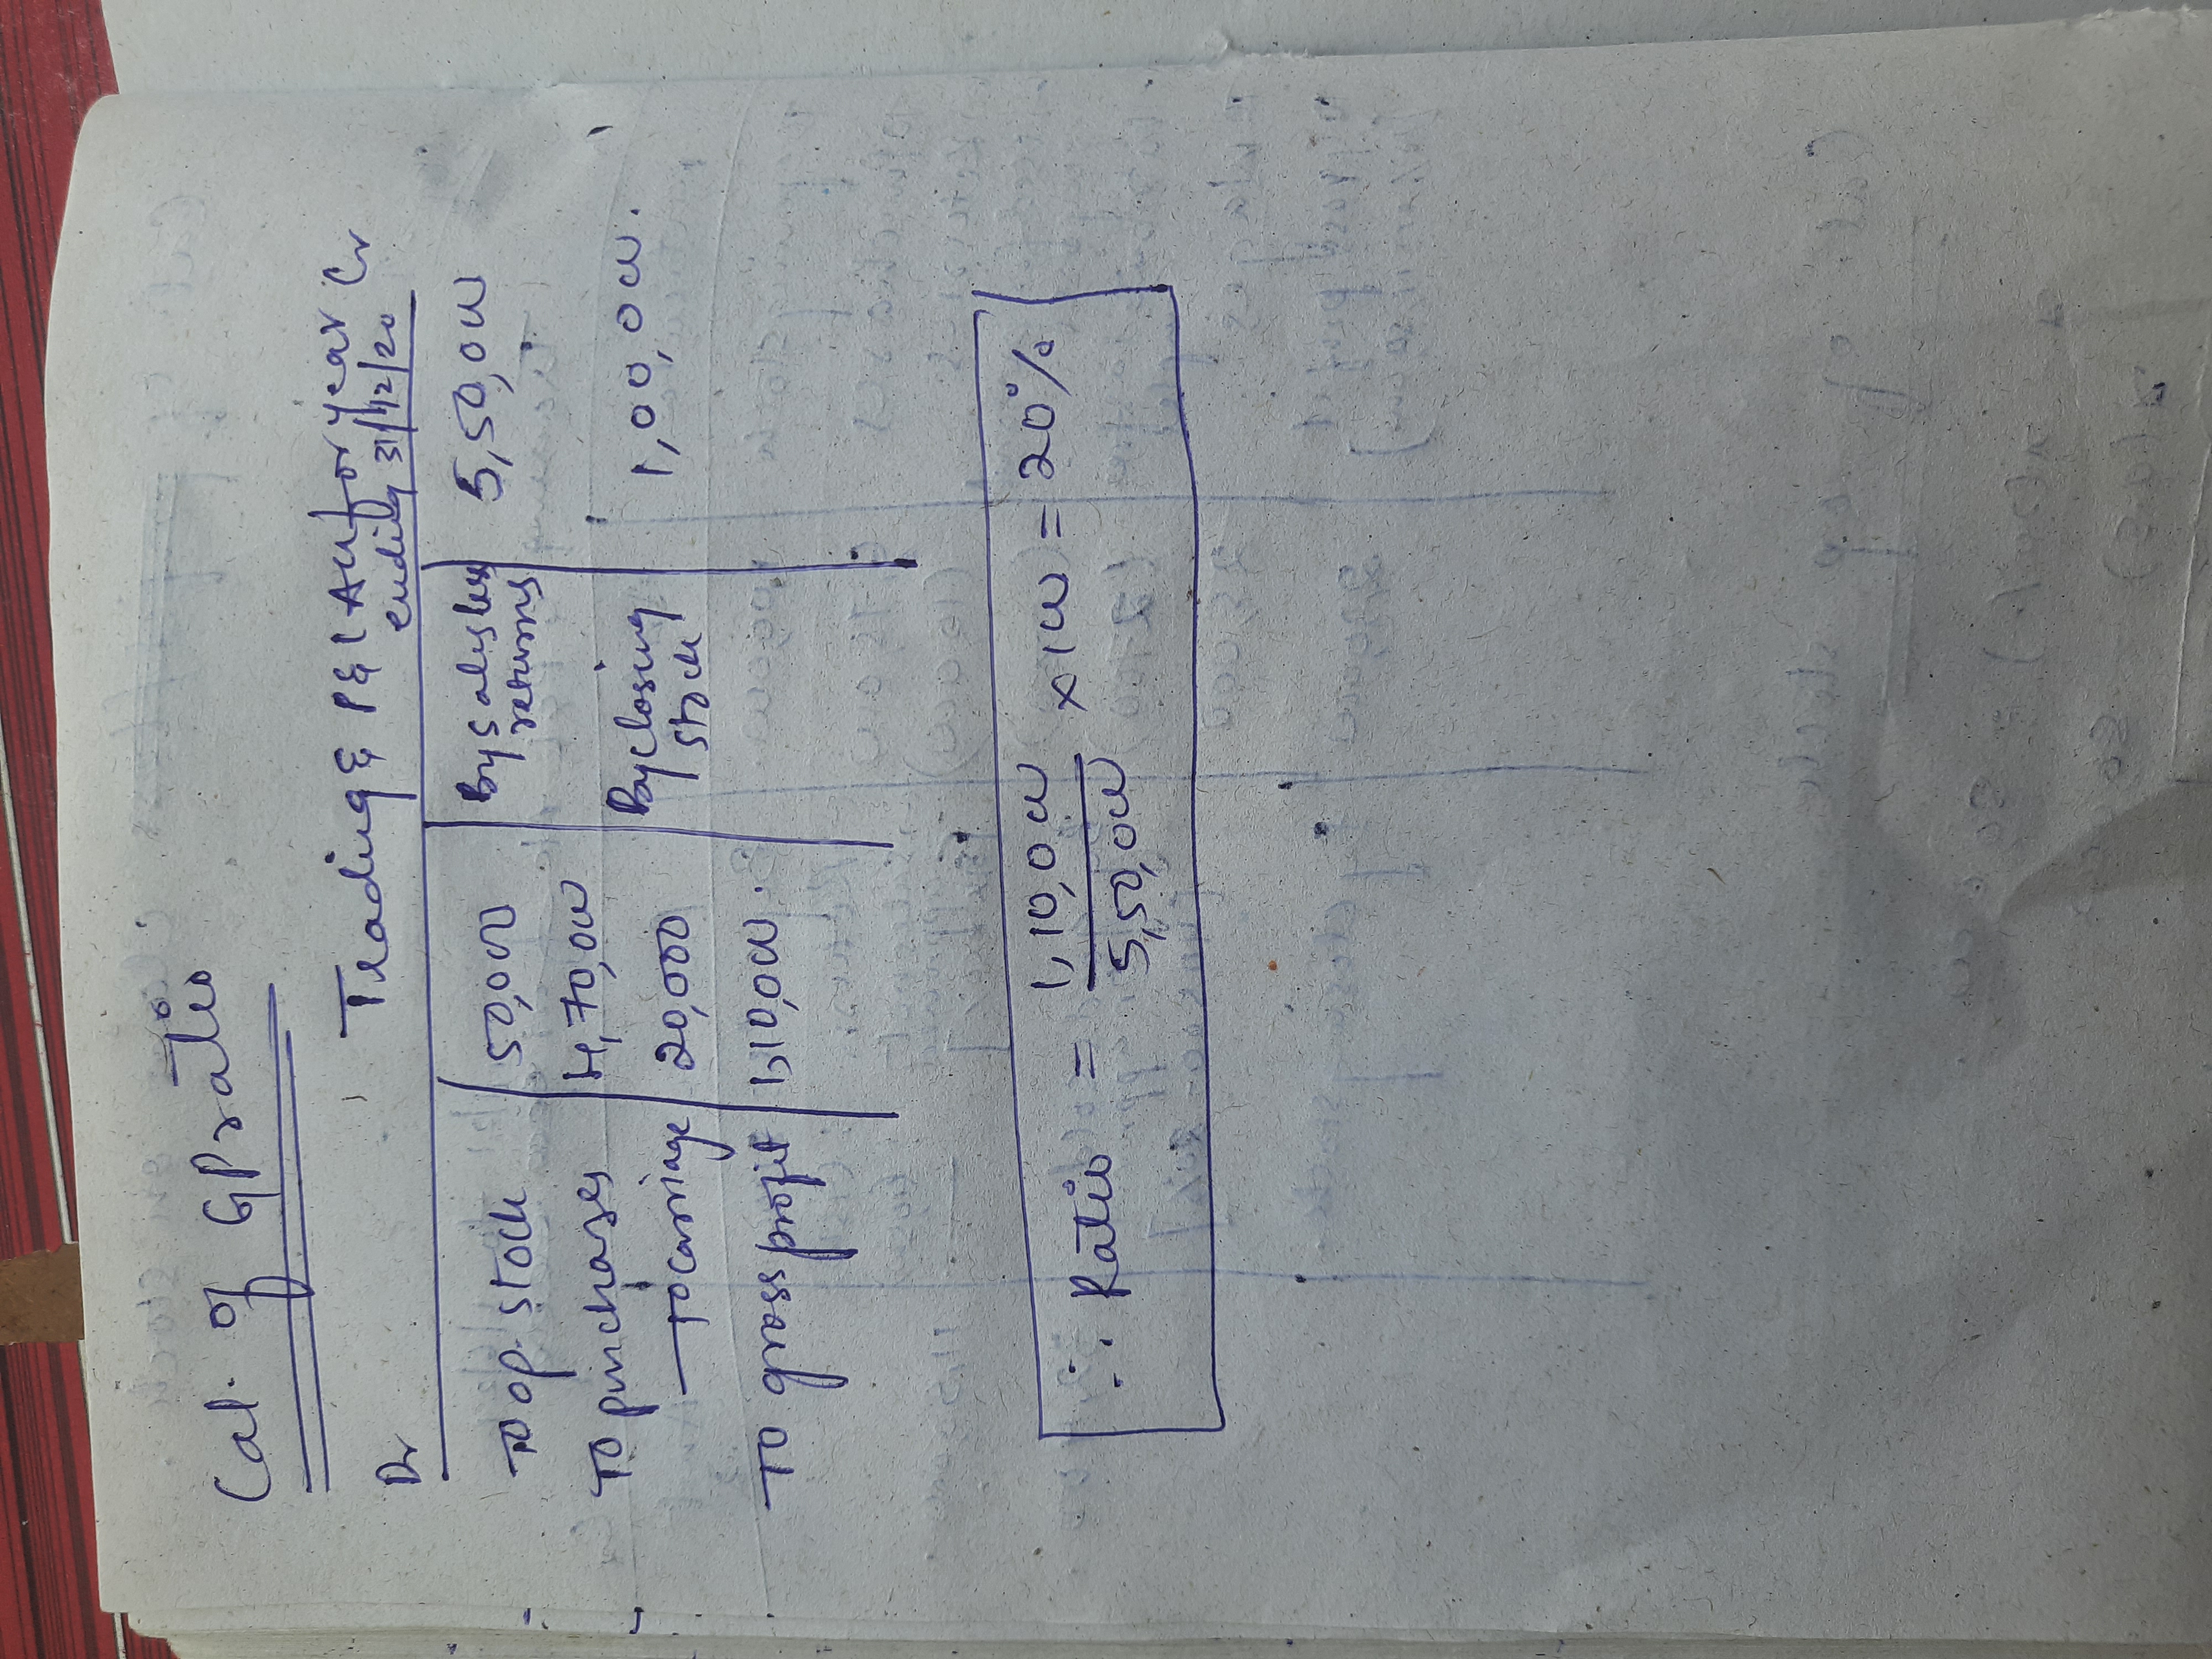 Cal. of GP ratio
Trading & P&L A/c for year
ending 31/12/20
Dr
Cr
To op. stock 50,000 By sales less returns 5,50,000
To purchases 4,70,000
To carriage 20,000 By closing stock 1,00,000.
To gross profit 1,10,000.
∴ Ratio = 1,10,000 / 5,50,000 × 100 = 20%